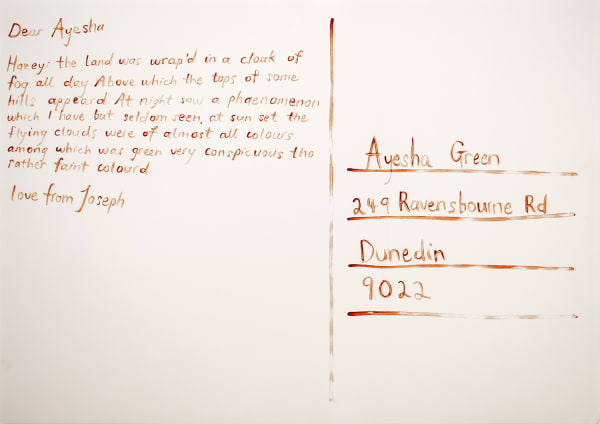 Dear Ayesha
Hazey: the land was wrap'd in a cloak of
fog all day Above which the tops of some
hills appeard At night saw a phaenomenon
which I have but seldom seen, at sun set the
flying clouds were of almost all colours
among which was green very conspicuous tho
rather faint colourd
love from Joseph
Ayesha Green
249 Ravensbourne Rd
Dunedin
9022